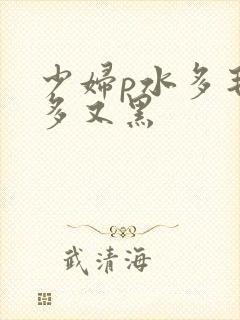 少婦p水多
多又黑
武清海